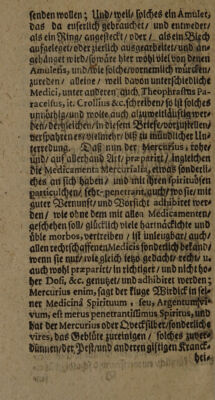 senden wollen; Und/ weil/ solches ein Amulet,
das da euserlich gebrauchet/ und entweder
als ein Ring angesteckt/ oder/ als ein Blech
aufgeleget/ oder zierlich ausgearbeitet/ und an-
gehänget wird/ sowäre hier wohl viel von denen
Amuletis, und/ wie solche/ vornemlich würcken/
zureden/ alleine/ weil davon unterschiedliche
Medici, unter anderen auch Theophrastus Pa-
racelsus, it. Crollius &c. schreiben/ so ist solches
unnöthig/ und wolte auch alzuweitläuftig wer-
den/ dergleichen/ in diesem Brieffe/ vorzustellen/
versparen es vielmehr/ biß zu mündlicher Un-
terredung. Daß nun der Mercurius, rohe/
und/ auf allerhand Art/ præparirt/ ingleichen
die Medicamenta Mercurialia, etwas sonderli-
ches an sich haben/ und mit ihren spirituösen
particulchen/ sehr penetrant, auch/ wo sie/ mit
guter Vernunft/ und Vorsicht adhibiret wer-
den/ wie ohne dem mit allen Medicamenten/
geschehen soll/ glücklich viele hartnäckichte und
üble morbos, vertreiben/ ist unleugbar/ auch/
allen rechtschaffenen Medicis sonderlich bekand/
wenn sie nur/ wie gleich jetzo gedacht/ recht/ u.
auch wohl præparirt/ in richtiger/ und nicht ho-
her Dosi, &c. genutzet/ und adhibiret werden;
Mercurius enim, sagt der kluge Wirdich in sei-
ner Medicinâ Spirituum, seu, Argentum vi-
vum, est merus penetrantissimus Spiritus, und
hat der Mercurius oder Qvecksilber/ sonderliche
vires, das Geblüte zureinigen/ solches zuver-
dünnen/ der Pest/ und anderen giftigen Kranck-
hei-